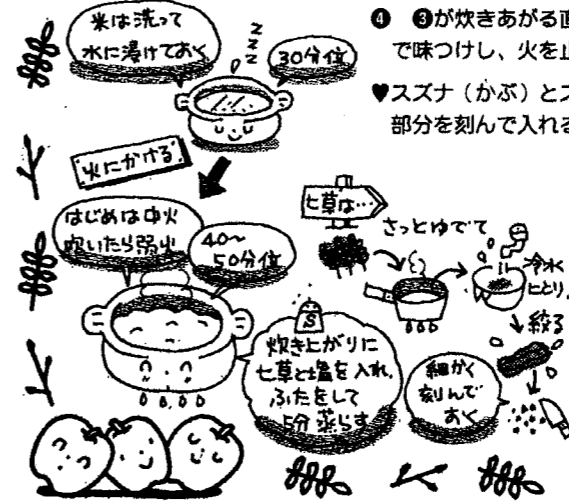 米は洗って
水に浸けておく
zzz
30分位
❹ ❸が炊きあがる直
で味つけし、火を止
♥スズナ（かぶ）とス
部分を刻んで入れる
火にかける
はじめは中火
吹いたら弱火
40〜
50分位
七草は…
さっとゆでて
冷水
にとり、
絞る
細かく
刻んで
おく
S
炊き上がりに
七草と塩を入れ、
ふたをして
5分蒸らす